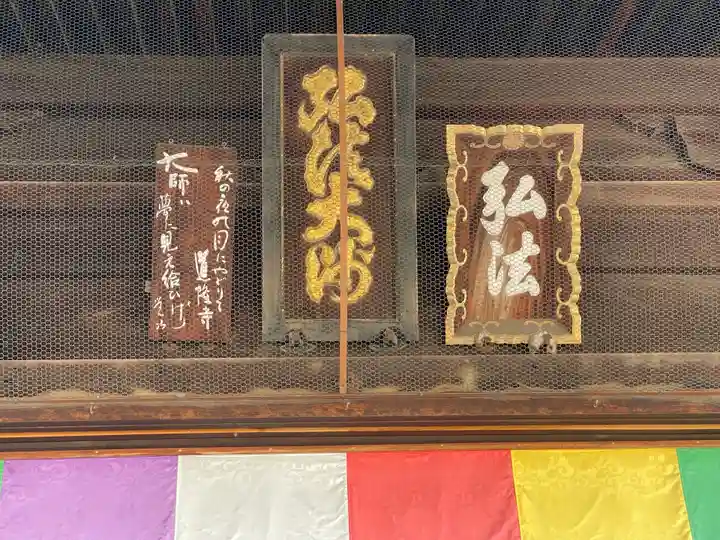 弘法
弘法大師
秋の夜の月にやどりて
道隆寺
大師は
夢に見え給ひけ